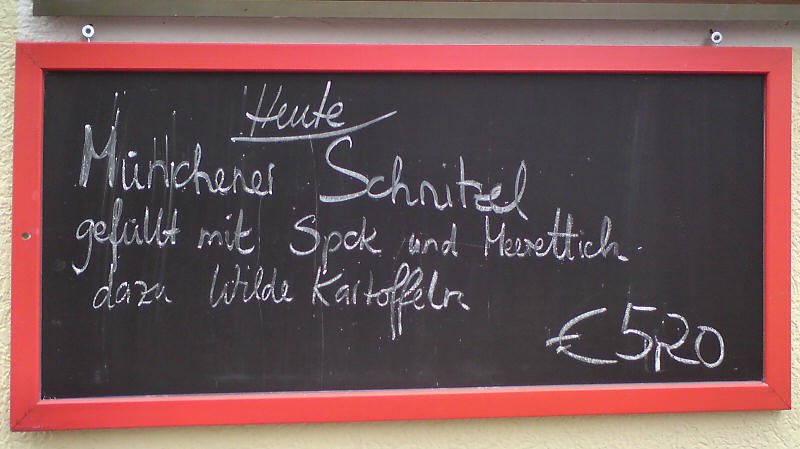 Heute
Münchener Schnitzel
gefüllt mit Spck und Meerettich
dazu Wilde Kartoffeln
€ 5,20